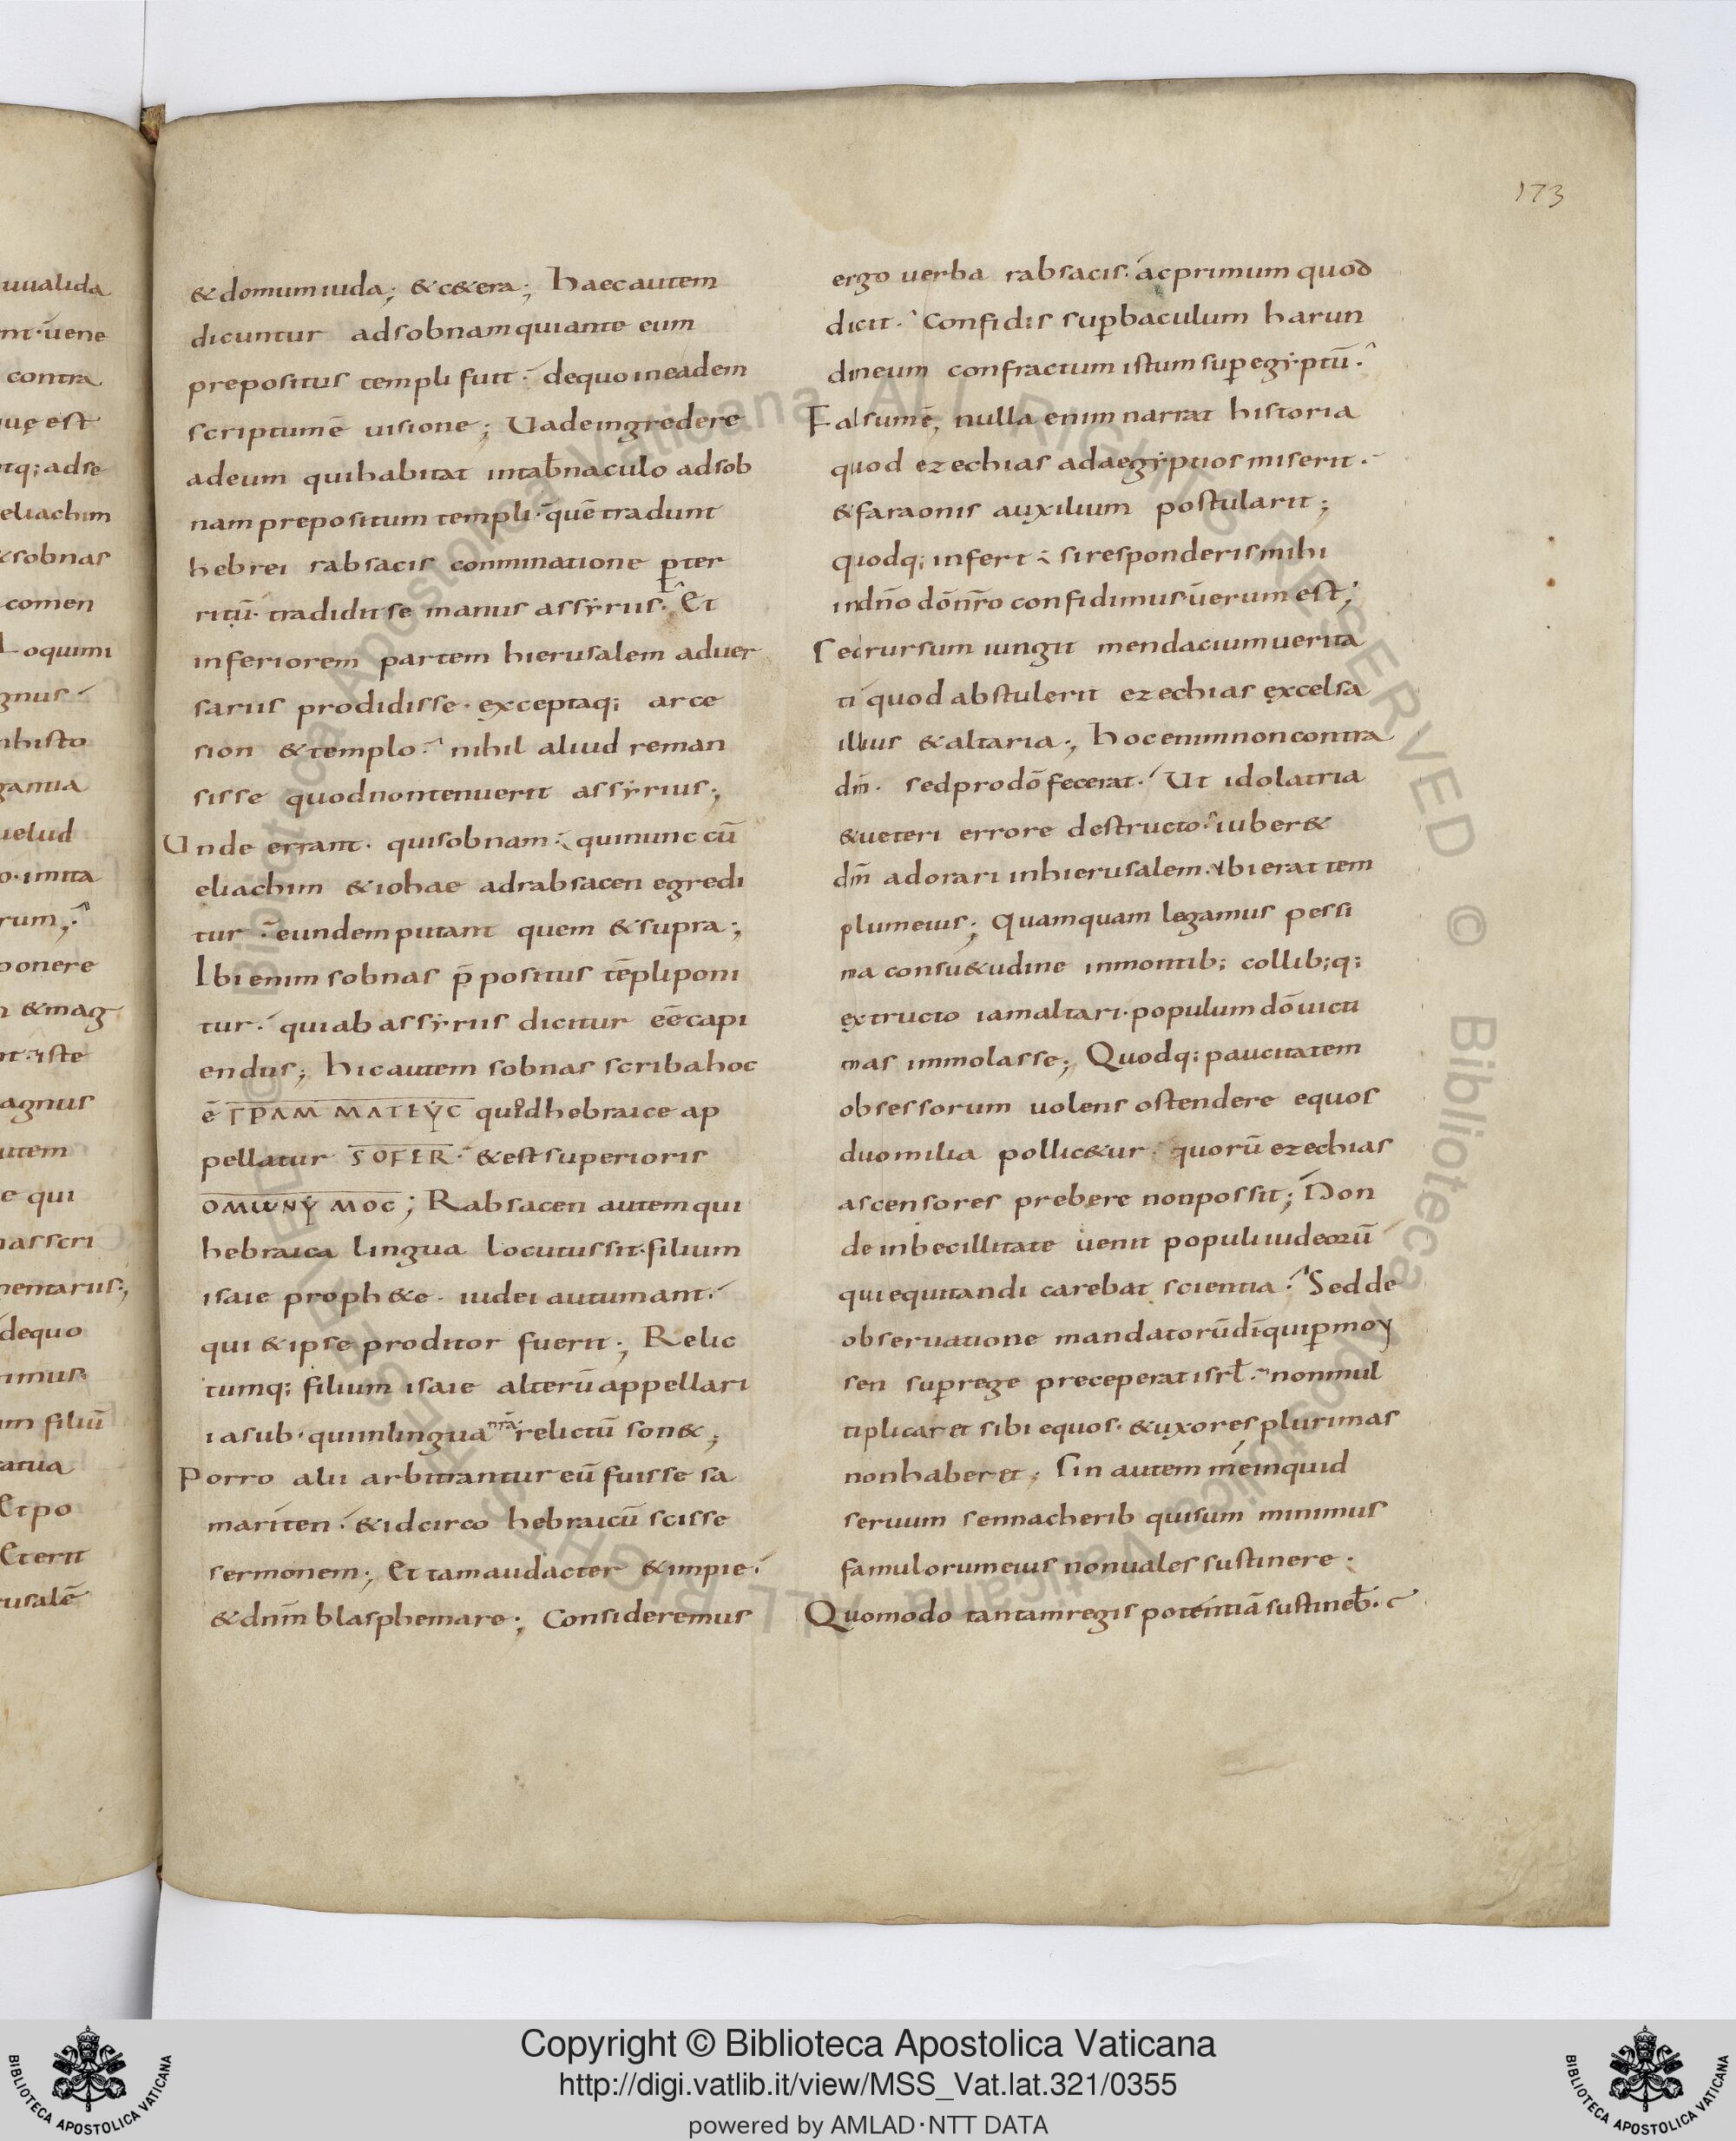 uualida
nt· uene
contra
quę est
itq; adse
eliachim
&sobnas
comen
Loquimi
gnus
nhisto
gantia
uelud
o· imita
rum;
ponere
& mag
nt· iste
agnus
utem
e qui
nas scri
mentariis;
dequo
imus·
m filiū
atiua
Et po
Et erit
rusalē
173
& domum iuda; & c&era; Haec autem
dicuntur ad sobnam qui ante eum
prepositus templi fuit· de quo in eadem
scriptum ē uisione; Uade ingredere
ad eum qui habitat in tab̄naculo ad sob
nam prepositum templi· quē tradunt
hebrei rabsacis conminatione p̱ter
ritū· tradidit se manus assẏriis· Et
inferiorem partem hierusalem aduer
sariis prodidisse· exceptaq; arce
sion & templo· nihil aliud reman
sisse quod non tenuerit assẏrius;
Unde errant· qui sobnam· qui nunc cū
eliachim & iohae ad rabsacen egredi
tur· eundem putant quem & supra;
Ibi enim sobnas p̄positus tēpli poni
tur· qui ab assẏriis dicitur eē capi
endus; Hic autem sobnas scriba hoc
ē ΓΡΑΜΜΑΤΕΥC quod hebraice ap
pellatur SOFER· & est superioris
OMωNYMOC; Rabsacen autem qui
hebraica lingua locutus sit· filium
isaie proph&e· iudei autumant·
qui & ipse proditor fuerit; Relic
tumq; filium isaie alterū appellari
iasub· qui in lingua nr̄a relictū son&;
Porro alii arbitrantur eū fuisse sa
mariten· & idcirco hebraicū scisse
sermonem; Et tam audacter & impie·
& dnm̄ blasphemare; Consideremus
ergo uerba rabsacis· ac primum quod
dicit· Confidis sup̱ baculum harun
dineum confractum istum sup̱ egẏptū·
Falsum ē, nulla enim narrat historia
quod ezechias ad aegẏptios miserit·
& faraonis auxilium postularit;
quodq; infert· si responderis mihi
in dn̄o dō nr̄o confidimus· uerum est;
Sed rursum iungit mendacium uerita
ti quod abstulerit ezechias excelsa
illius & altaria; Hoc enim non contra
dm̄· sed pro dō fecerat· Ut idolatria
& ueteri errore destructo· iuber&
dm̄ adorari in hierusalem· ubi erat tem
plum eius; Quamquam legamus pessi
ma consu&udine in montib; collib;q;
extructo iam altari· populum dō uicti
mas immolasse; Quodq; paucitatem
obsessorum uolens ostendere equos
duo milia pollic&ur· quorū ezechias
ascensores prebere non possit; Non
de inbecillitate uenit populi iudeorū
qui equitandi carebat scientia· Sed de
obseruatione mandatorū dī qui p̱ moy
sen sup̱ rege preceperat isrł· non mul
tiplicaret sibi equos· & uxores plurimas
non haberet; Sin autem me inquid
seruum sennacherib qui sum minimus
famulorum eius non uales sustinere·
Quomodo tantam regis potentiā sustineb·
Copyright © Biblioteca Apostolica Vaticana
http://digi.vatlib.it/view/MSS_Vat.lat.321/0355
powered by AMLAD·NTT DATA
BIBLIOTECA APOSTOLICA VATICANA
BIBLIOTECA APOSTOLICA VATICANA